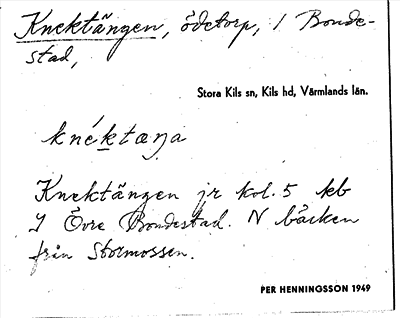 Knektängen, ödetorp, / Bonde-
stad,
Stora Kils sn, Kils hd, Värmlands län.
knéktæŋa
Knektängen jr kol. 5 kb
Övre Bondestad. N bäcken
från Stormossen.
PER HENNINGSSON 1949